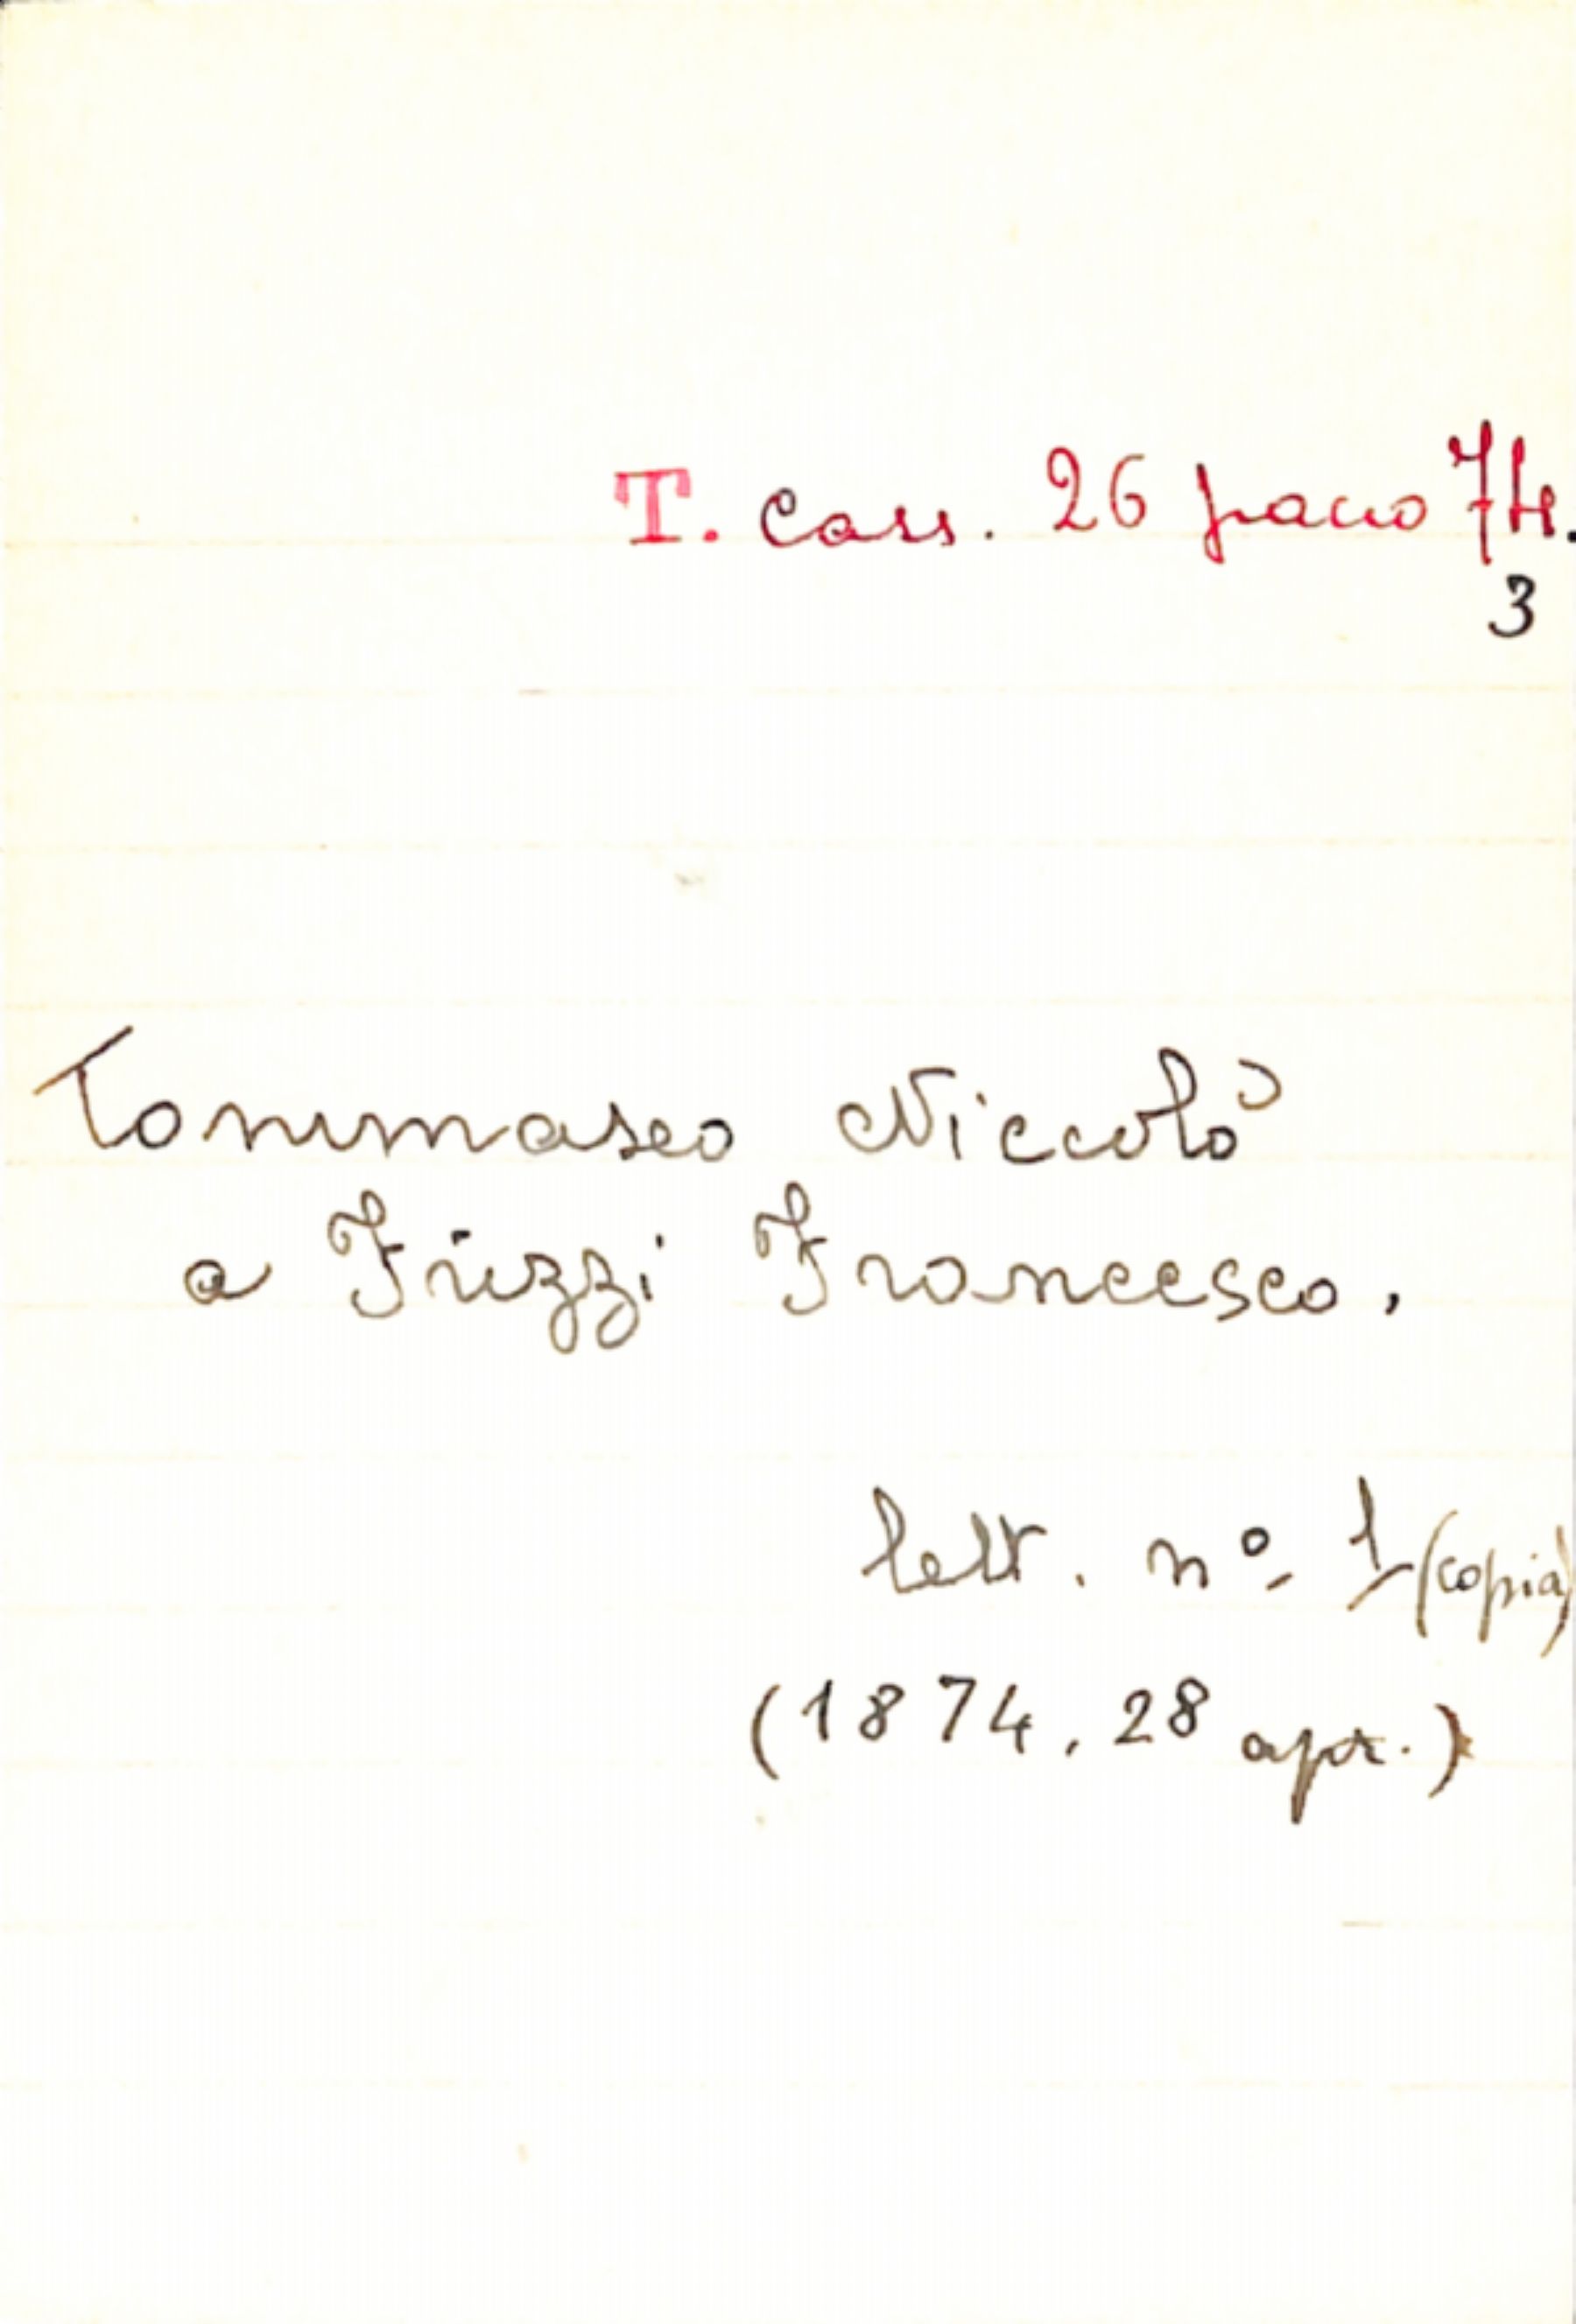 T. Cass. 26 pacco 74.
3
Tommaseo Niccolò
a Frizzi Francesco,
lett. nº 1 (copia)
(1874, 28 apr.)